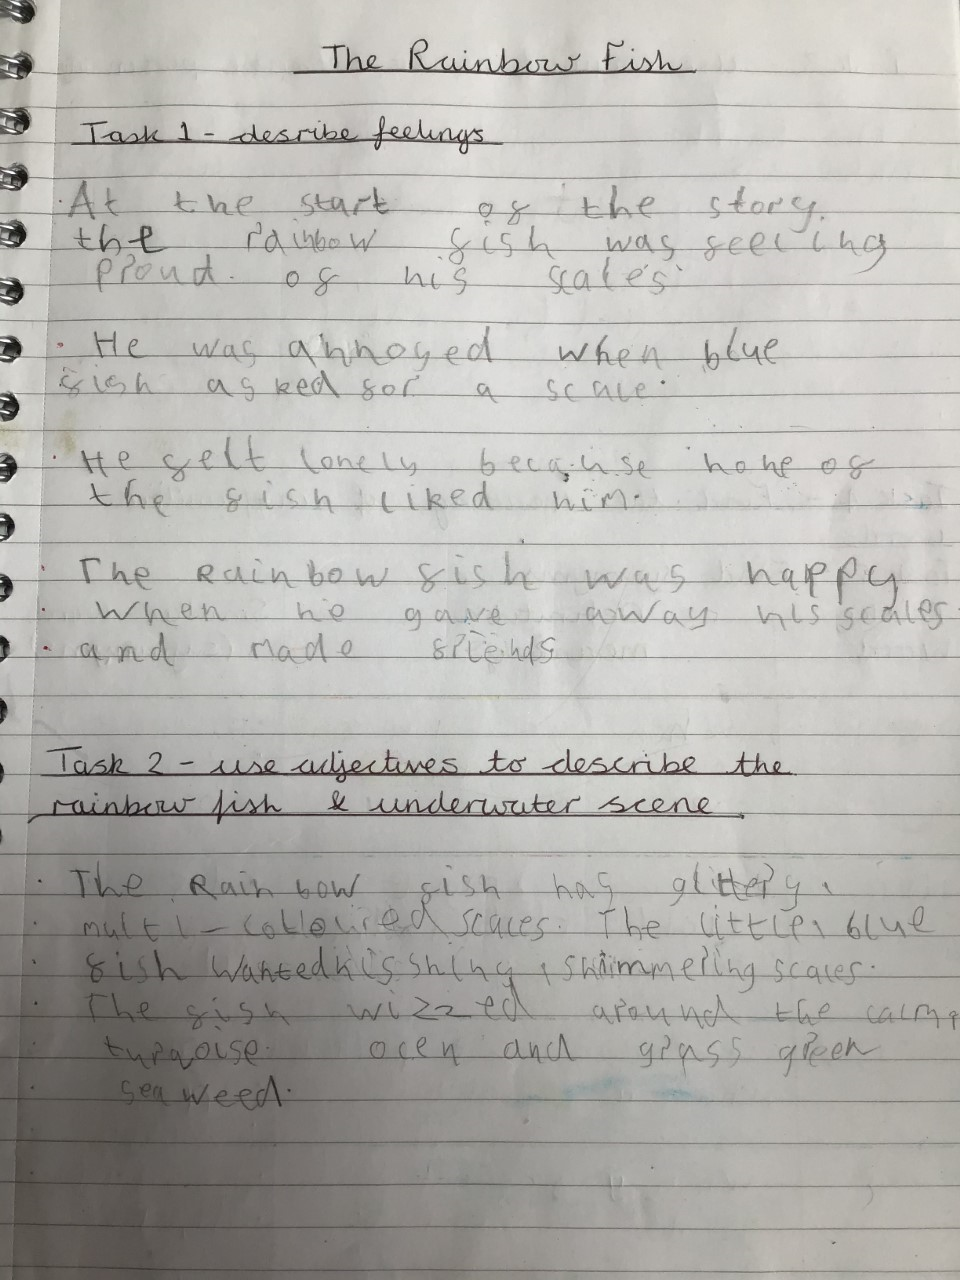 The Rainbow Fish
Task 1 - desribe feelings
At the start of the story.
the rainbow fish was feeling
proud. of his scales.
He was annoyed when blue
fish asked for a scale.
He felt lonely because none of
the fish liked him.
The Rainbow fish was happy
when he gave away his scales
and made friends
Task 2 - use adjectives to describe the
rainbow fish & underwater scene
The Rainbow fish has glittery,
multi - colloured scales. The little, blue
fish wanted his shiny, shimmering scales.
The fish wizzed around the calm,
turqoise ocen and grass green
sea weed.